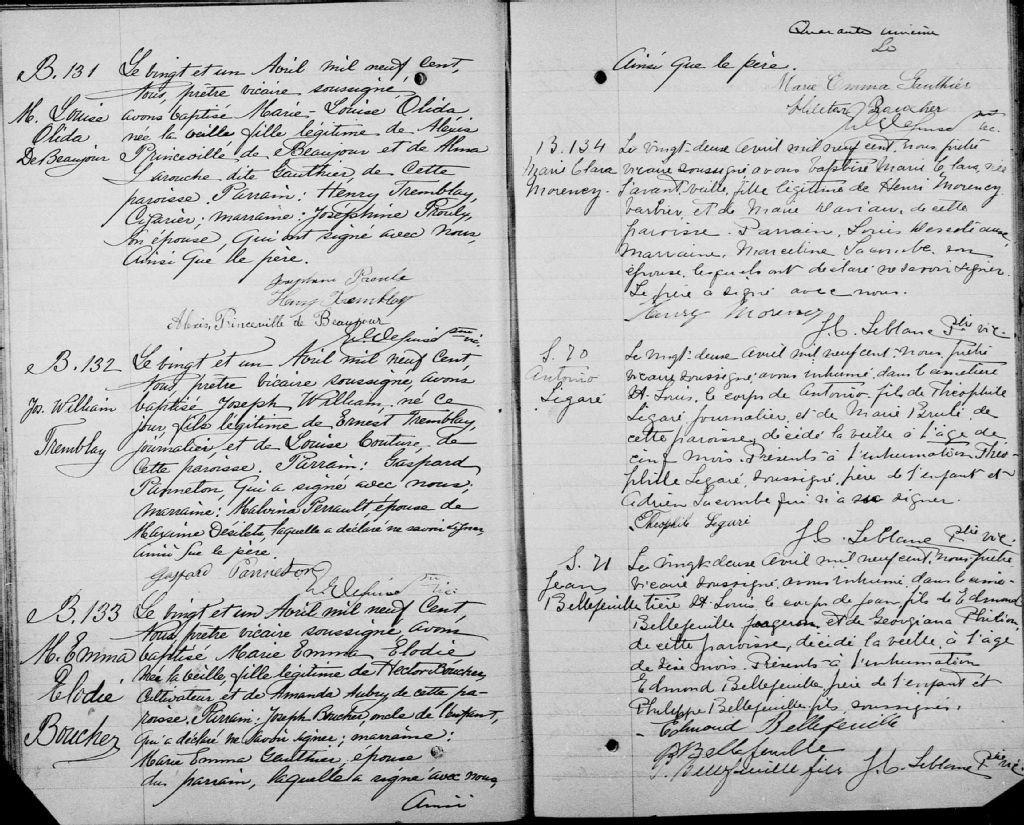 B. 131
M. Louise
Olida
De Beaujour
Le vingt et un Avril mil neuf cent,
Nous, prêtre vicaire soussigné,
avons baptisé Marie-Louise Olida
née la veille, fille légitime de Alexis
Princeville de Beaujour et de Alma
Larouche dite Gauthier de Cette
paroisse. Parrain: Henry Tremblay,
Cigarier; marraine: Joséphine Proulx,
son épouse, Qui ont signé avec Nous,
Ainsi Que le père.
Josephine Proulx
Henry Tremblay
Alexis, Princeville de Beaujour
B. 132
Jos. William
Tremblay
Le vingt et un Avril mil neuf Cent,
Nous prêtre vicaire soussigné, avons
baptisé Joseph William, né ce
jour fils légitime de Ernest Tremblay,
journalier, et de Louise Couture, de
Cette paroisse. Parrain: Gaspard
Panneton, Qui a signé avec nous,
marraine: Malvina Perrault, épouse de
Maxime Desilets, laquelle a déclaré ne savoir signer,
ainsi que le père.
Gaspard Panneton
B. 133
M. Emma
Elodie
Boucher
Le vingt et un Avril mil neuf Cent,
Nous prêtre vicaire soussigné avons
baptisé Marie Emma Elodie
Née la veille, fille légitime de Hector Boucher,
Cultivateur et de Amanda Aubry de cette pa-
roisse. Parrain: Joseph Boucher, oncle de l'enfant,
Qui a déclaré ne savoir signer; marraine:
Marie Emma Gauthier, épouse
du parrain, laquelle a signé avec nous,
Ainsi
Quarante
Ainsi Que le père.
Marie Emma Gauthier
Boucher
B. 134
Marie Clara
Morency.
Le vingt-deux avril mil neuf cent, nous prêtre
vicaire soussigné avons baptisé Marie Clara, née
l'avant veille, fille légitime de Henri Morency
barbier, et de Marie, de cette
paroisse. Parrain, Louis
Marraine, Marceline Lacombe, son
épouse, lesquels ont déclaré ne savoir signer.
Le père a signé avec nous.
Henry Morency
J. C. Leblanc Ptre vic.
S. 70
Antonio
Legaré
Le vingt-deux avril mil neuf cent, nous, prêtre
vicaire soussigné, avons inhumé, dans le cimetière
St. Louis, le corps de Antonio, fils de Théophile
Légaré, journalier, et de Marie Brulé de
cette paroisse, décédé la veille à l'âge de
cinq mois. Présents à l'inhumation Théo-
phile Légaré, soussigné, père de l'enfant et
Adrien Lacombe qui n'a su signer.
Théophile Legaré
J. C. Leblanc Ptre vic.
S. 71
Jean
Bellefeuille
Le vingt-deux avril mil neuf cent, nous, prêtre
vicaire soussigné, avons inhumé, dans le cime-
tière St. Louis, le corps de Jean, fils de Edmond
Bellefeuille, et de Georgiana Philion
de cette paroisse, décédé la veille, à l'âge
de mois. Présents à l'inhumation
Edmond Bellefeuille, père de l'enfant et
Philippe Bellefeuille, fils, soussignés.
Edmond Bellefeuille
P. Bellefeuille
P. Bellefeuille fils
J. C. Leblanc Ptre vic.